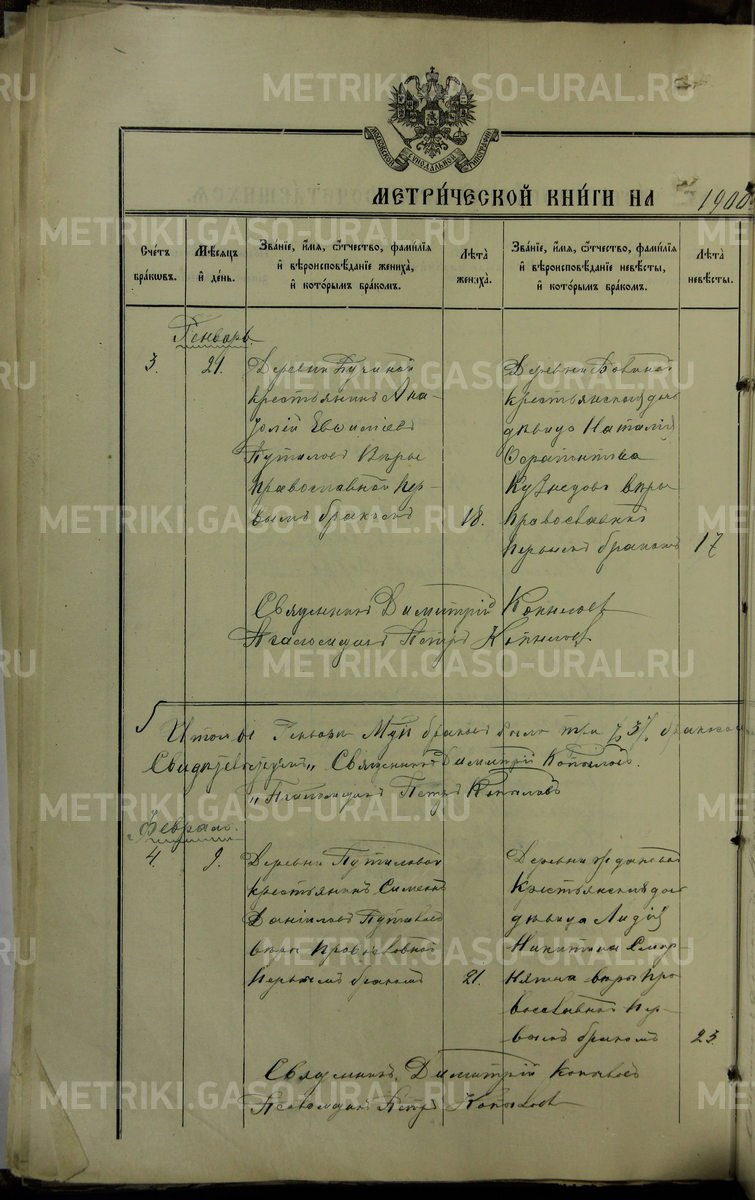 METRIKI.GASO-URAL.RU
МОСКОВСКОЙ СѴНОДАЛЬНОЙ ТИПОГРАФІИ
МЕТРИ́ЧЕСКОЙ КНИ́ГИ НА 1900
Сче́тъ бра́кѡвъ.
Мѣ́сяцъ и҆ де́нь.
Зва́нїе, и҆́мя, ѻ҆́тчество, фами́лїя и҆ вѣроисповѣ́данїе жениха̀, и҆ кото́рымъ бра́комъ.
Лѣ́та жениха̀.
Зва́нїе, и҆́мя, ѻ҆́тчество, фами́лїя и҆ вѣроисповѣ́данїе невѣ́сты, и҆ кото́рымъ бра́комъ.
Лѣ́та невѣ́сты.
Генварь.
3.
21.
Деревни
крестьянинъ Ана-
толій Евѳиміевъ
Путиловъ вѣры
православной пер-
вымъ бракомъ
18.
Деревни
крестьянская дочь
дѣвица Наталія
Кузнецова вѣры
православной
первымъ бракомъ
17
Священникъ Димитрій Копыловъ
Псаломщикъ Петръ Копыловъ
Итого въ Генварѣ м-цѣ браковъ было три /3/
Священникъ Димитрій Копыловъ.
Псаломщикъ Петръ Копыловъ
Февраль.
4.
9.
Деревни Путиловой
крестьянинъ Симеонъ
Даніиловъ Путиловъ
вѣры православной
первымъ бракомъ
21.
Деревни
крестьянская дочь
дѣвица Лидія
Никитина
вѣры пра-
вославной пер-
вымъ бракомъ
23
Священникъ Димитрій Копыловъ
Псаломщикъ Петръ Копыловъ